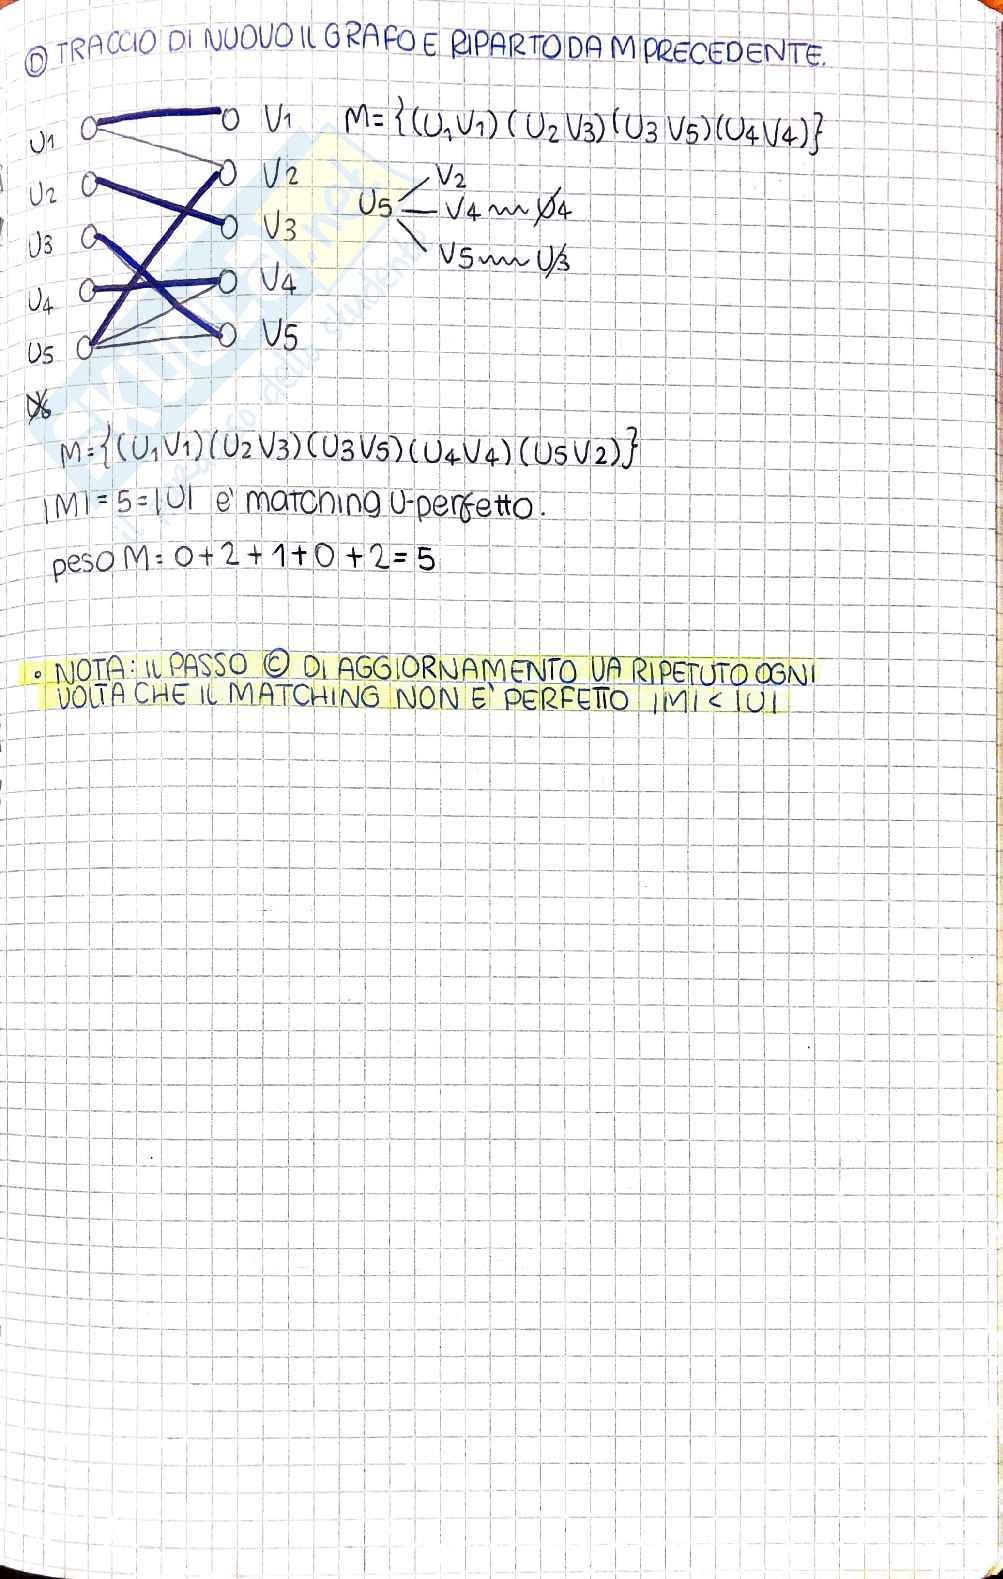 Ⓓ TRACCIO DI NUOVO IL GRAFO E RIPARTO DA M PRECEDENTE.
U1 V1 M={(U1V1)(U2V3)(U3V5)(U4V4)}
U2 V2
U3 V3
U4 V4
U5 V5
U5 V2
V4 U4
V5 U3
M={(U1V1)(U2V3)(U3V5)(U4V4)(U5V2)}
|M|=5=|U| e' matching U-perfetto.
peso M=0+2+1+0+2=5
• NOTA: IL PASSO Ⓒ DI AGGIORNAMENTO VA RIPETUTO OGNI
VOLTA CHE IL MATCHING NON E' PERFETTO |M|<|U|